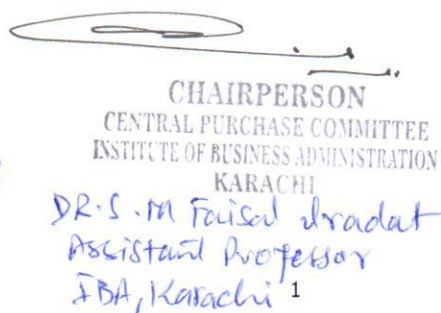 CHAIRPERSON
CENTRAL PURCHASE COMMITTEE
INSTITUTE OF BUSINESS ADMINISTRATION
KARACHI
DR. S. M Faisal Iradat
Assistant Professor
IBA, Karachi 1